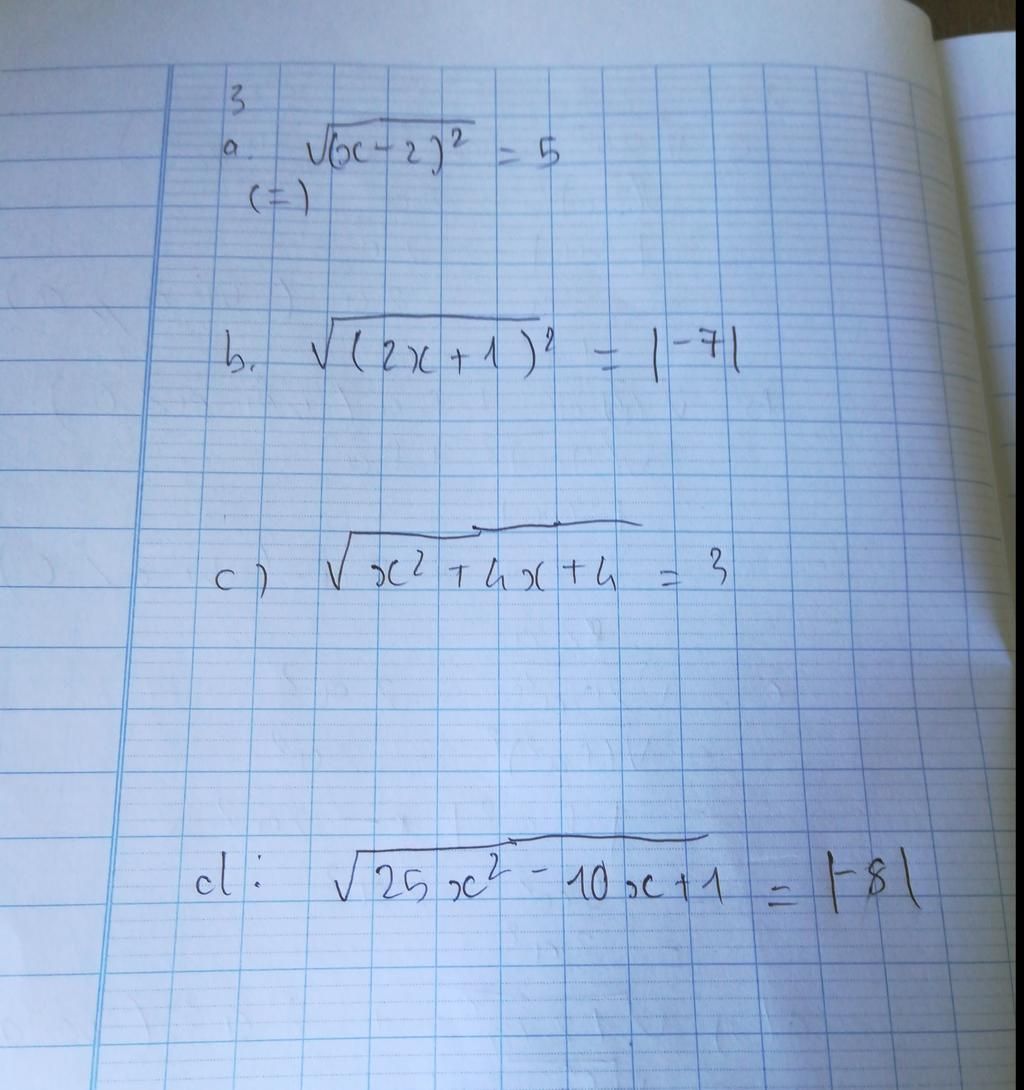 3
a. √(x-2)² = 5
(=)
b. √(2x+1)² = |-7|
c) √x²+4x+4 = 3
d: √25x²-10x+1 = |-8|